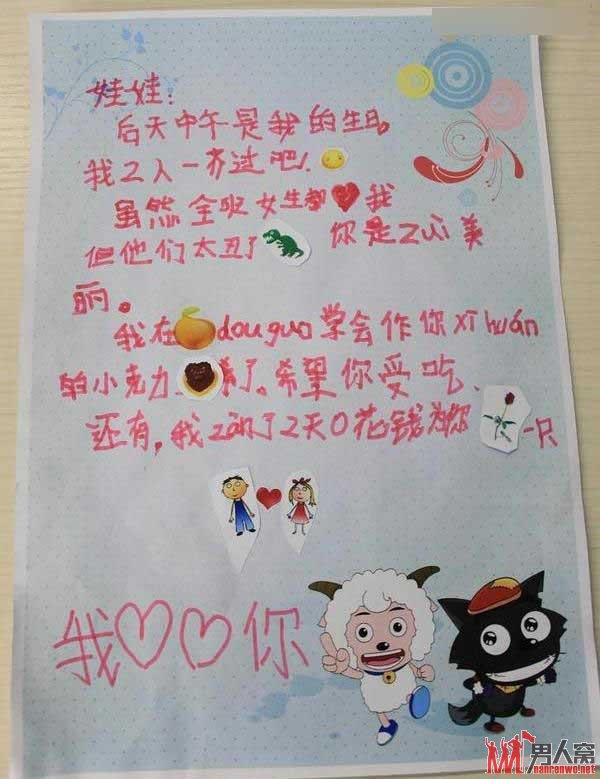 娃娃：
后天中午是我的生日。
我2人一齐过吧！
虽然全班女生都我
但他们太丑了 你是zuì美
丽。
我在douguo学会作你xǐhuān
的小克力了。希望你受吃、
还有，我2天0花钱为你一只
我♡♡你
男人窝
nanrenwo.net